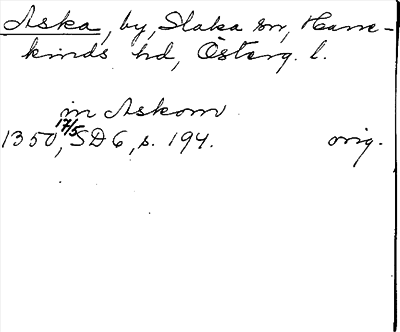 Aska, by, Slaka sn, Hane-
kinds hd, Österg. l.
in Askom
1350 17/5, SD 6, s. 194. orig.